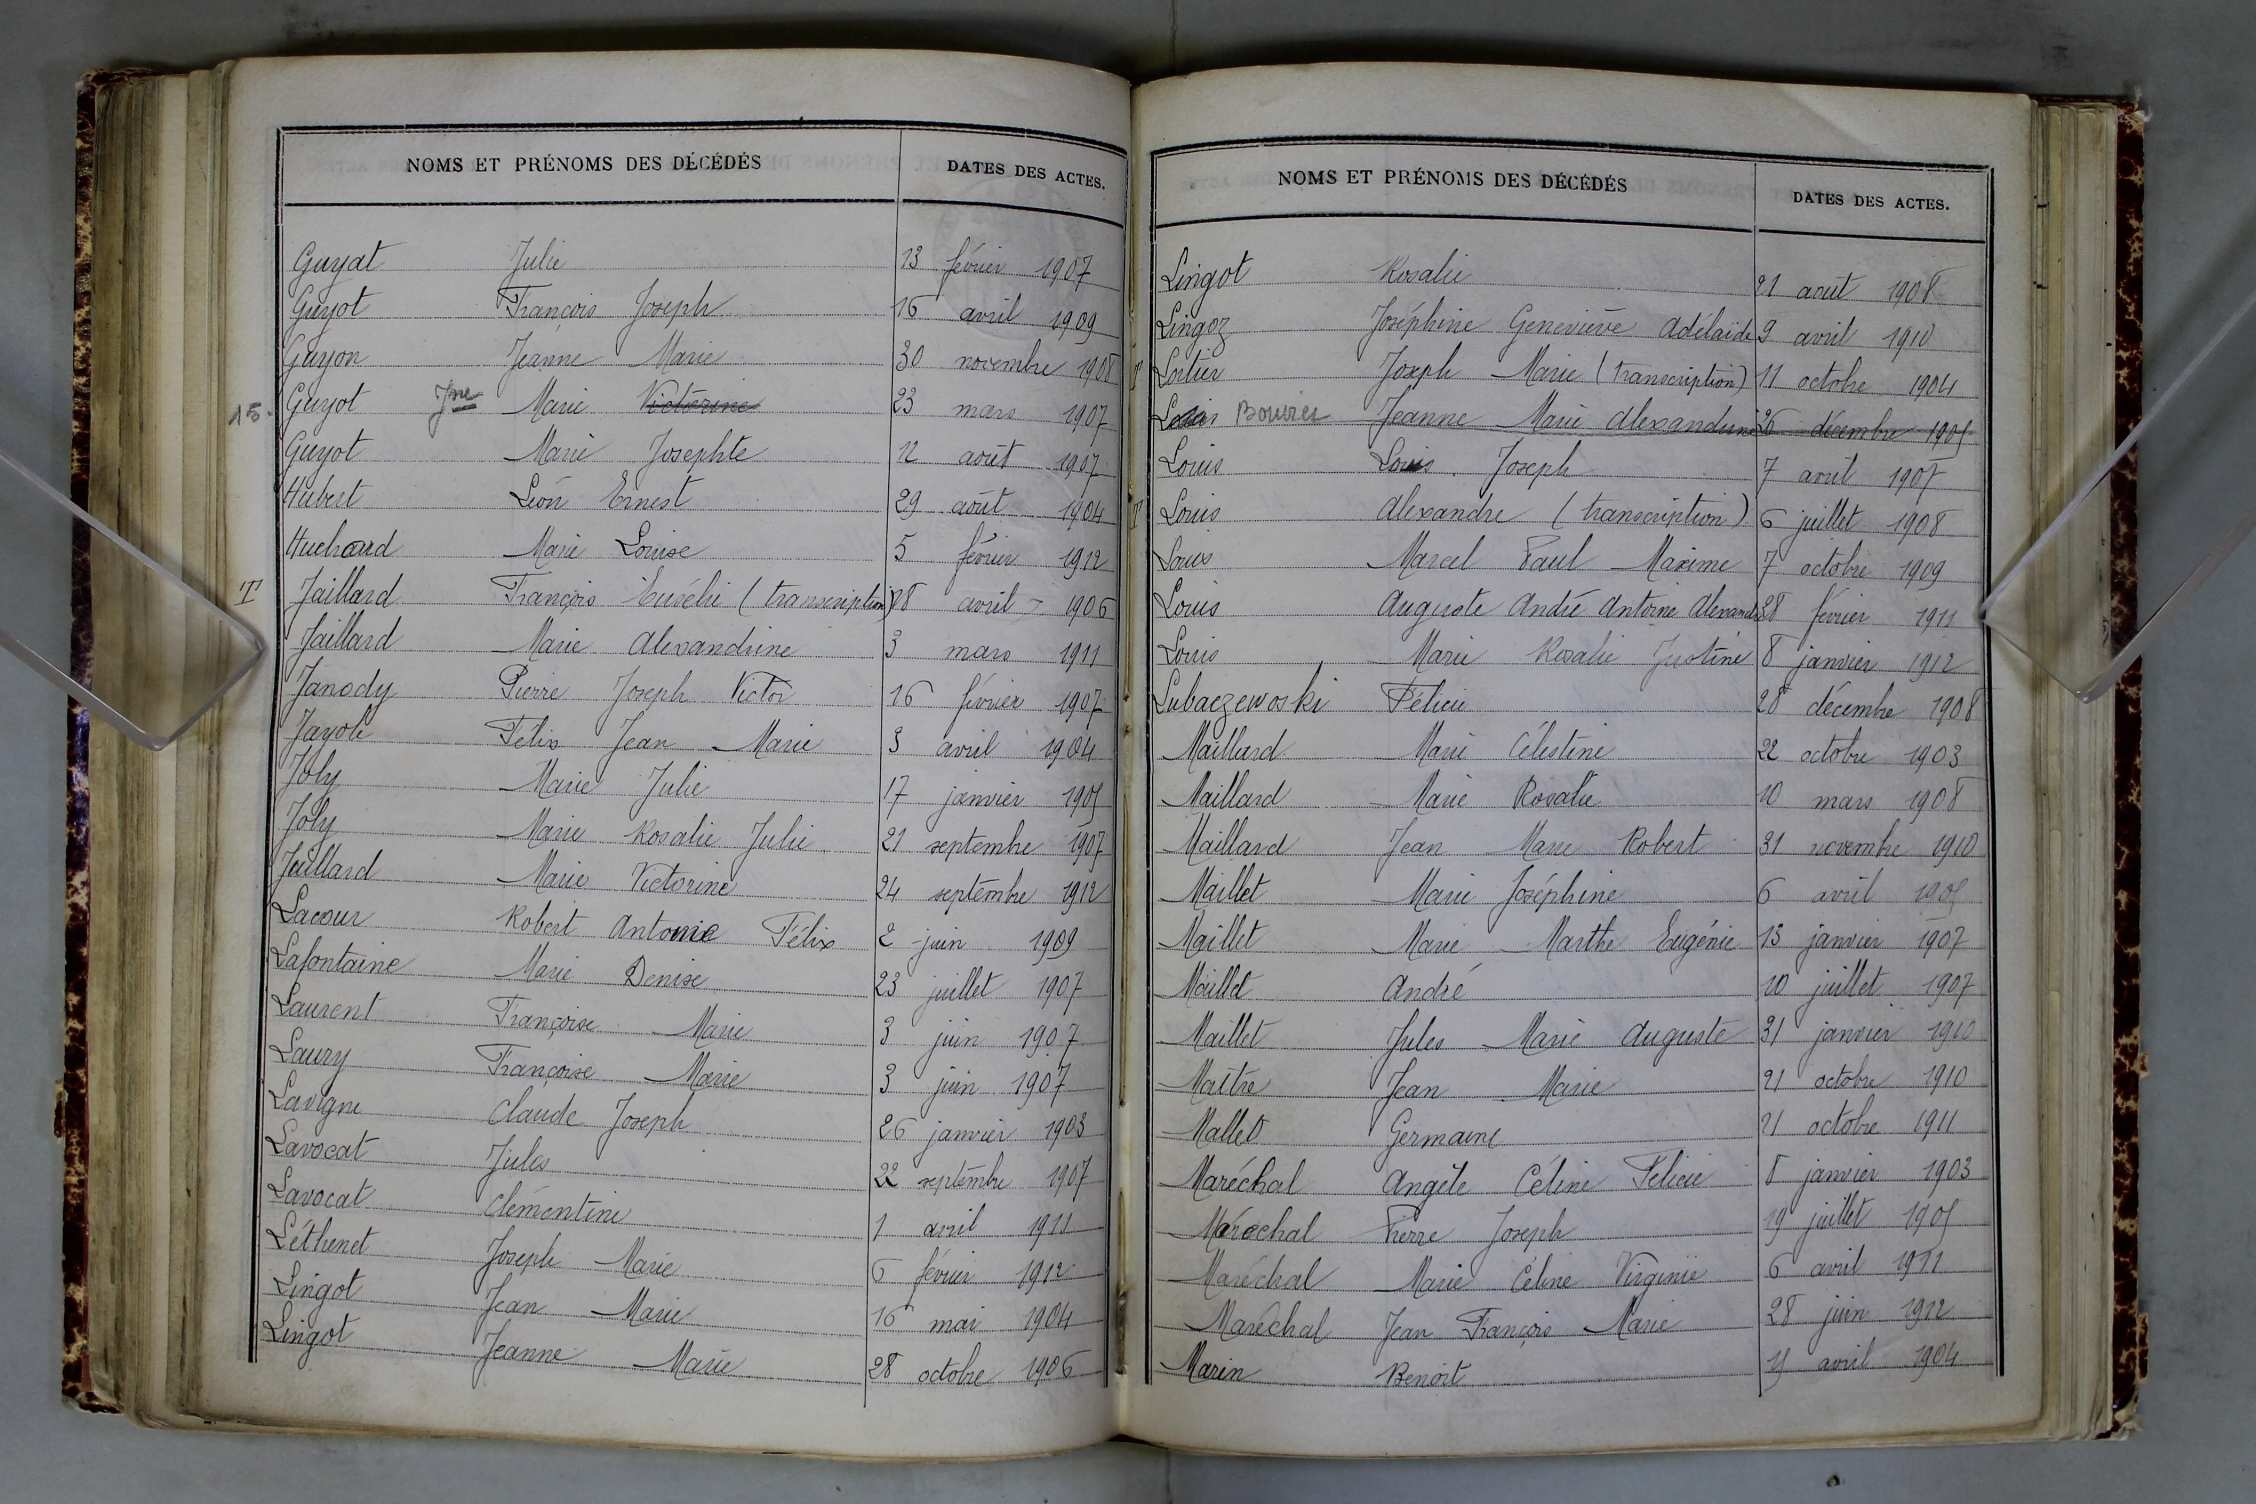 NOMS ET PRÉNOMS DES DÉCÉDÉS DATES DES ACTES.
Guyat Julie 13 février 1907
Guyot François Joseph 16 avril 1909
Guyon Jeanne Marie 30 novembre 1908
15. Guyot Jne Marie Victorine 23 mars 1907
Guyot Marie Josephte 12 août 1907
Hubert Léon Ernest 29 août 1904
Huchard Marie Louise 5 février 1912
T Jaillard François Eusélie (transcription) 28 avril 1906
Jaillard Marie Alexandrine 3 mars 1911
Janody Pierre Joseph Victor 16 février 1907
Jayole Félix Jean Marie 3 avril 1904
Joly Marie Julie 17 janvier 1905
Joly Marie Rosalie Julie 21 septembre 1907
Juillard Marie Victorine 24 septembre 1912
Lacour Robert Antoine Félix 2 juin 1909
Lafontaine Marie Denise 23 juillet 1907
Laurent Françoise Marie 3 juin 1907
Laury Françoise Marie 3 juin 1907
Lavigne Claude Joseph 26 janvier 1903
Lavocat Jules 22 septembre 1907
Lavocat Clémentine 1 avril 1911
Léthenet Joseph Marie 6 février 1912
Lingot Jean Marie 16 mai 1904
Lingot Jeanne Marie 28 octobre 1906
NOMS ET PRÉNOMS DES DÉCÉDÉS DATES DES ACTES.
Lingot Rosalie 21 août 1908
Lingoz Joséphine Geneviève Adélaïde 9 avril 1910
T Loitier Joseph Marie (transcription) 11 octobre 1904
Bouvier Jeanne Marie Alexandrine 26 décembre 1905
Louis Louis Joseph 7 avril 1907
T Louis Alexandre (transcription) 6 juillet 1908
Louis Marcel Paul Maxime 7 octobre 1909
Louis Auguste André Antoine Alexandre 28 février 1911
Louis Marie Rosalie Justine 8 janvier 1912
Lubaczewoski Félicie 28 décembre 1908
Maillard Marie Célestine 22 octobre 1903
Maillard Marie Rosalie 10 mars 1908
Maillard Jean Marie Robert 31 novembre 1910
Maillet Marie Joséphine 6 avril 1905
Maillet Marie Marthe Eugénie 13 janvier 1907
Maillet André 10 juillet 1907
Maillet Jules Marie Auguste 31 janvier 1910
Maître Jean Marie 21 octobre 1910
Mallet Germaine 21 octobre 1911
Maréchal Angèle Céline Félicie 8 janvier 1903
Maréchal Pierre Joseph 19 juillet 1905
Maréchal Marie Céline Virginie 6 avril 1911
Maréchal Jean François Marie 28 juin 1912
Marin Benoît 15 avril 1904